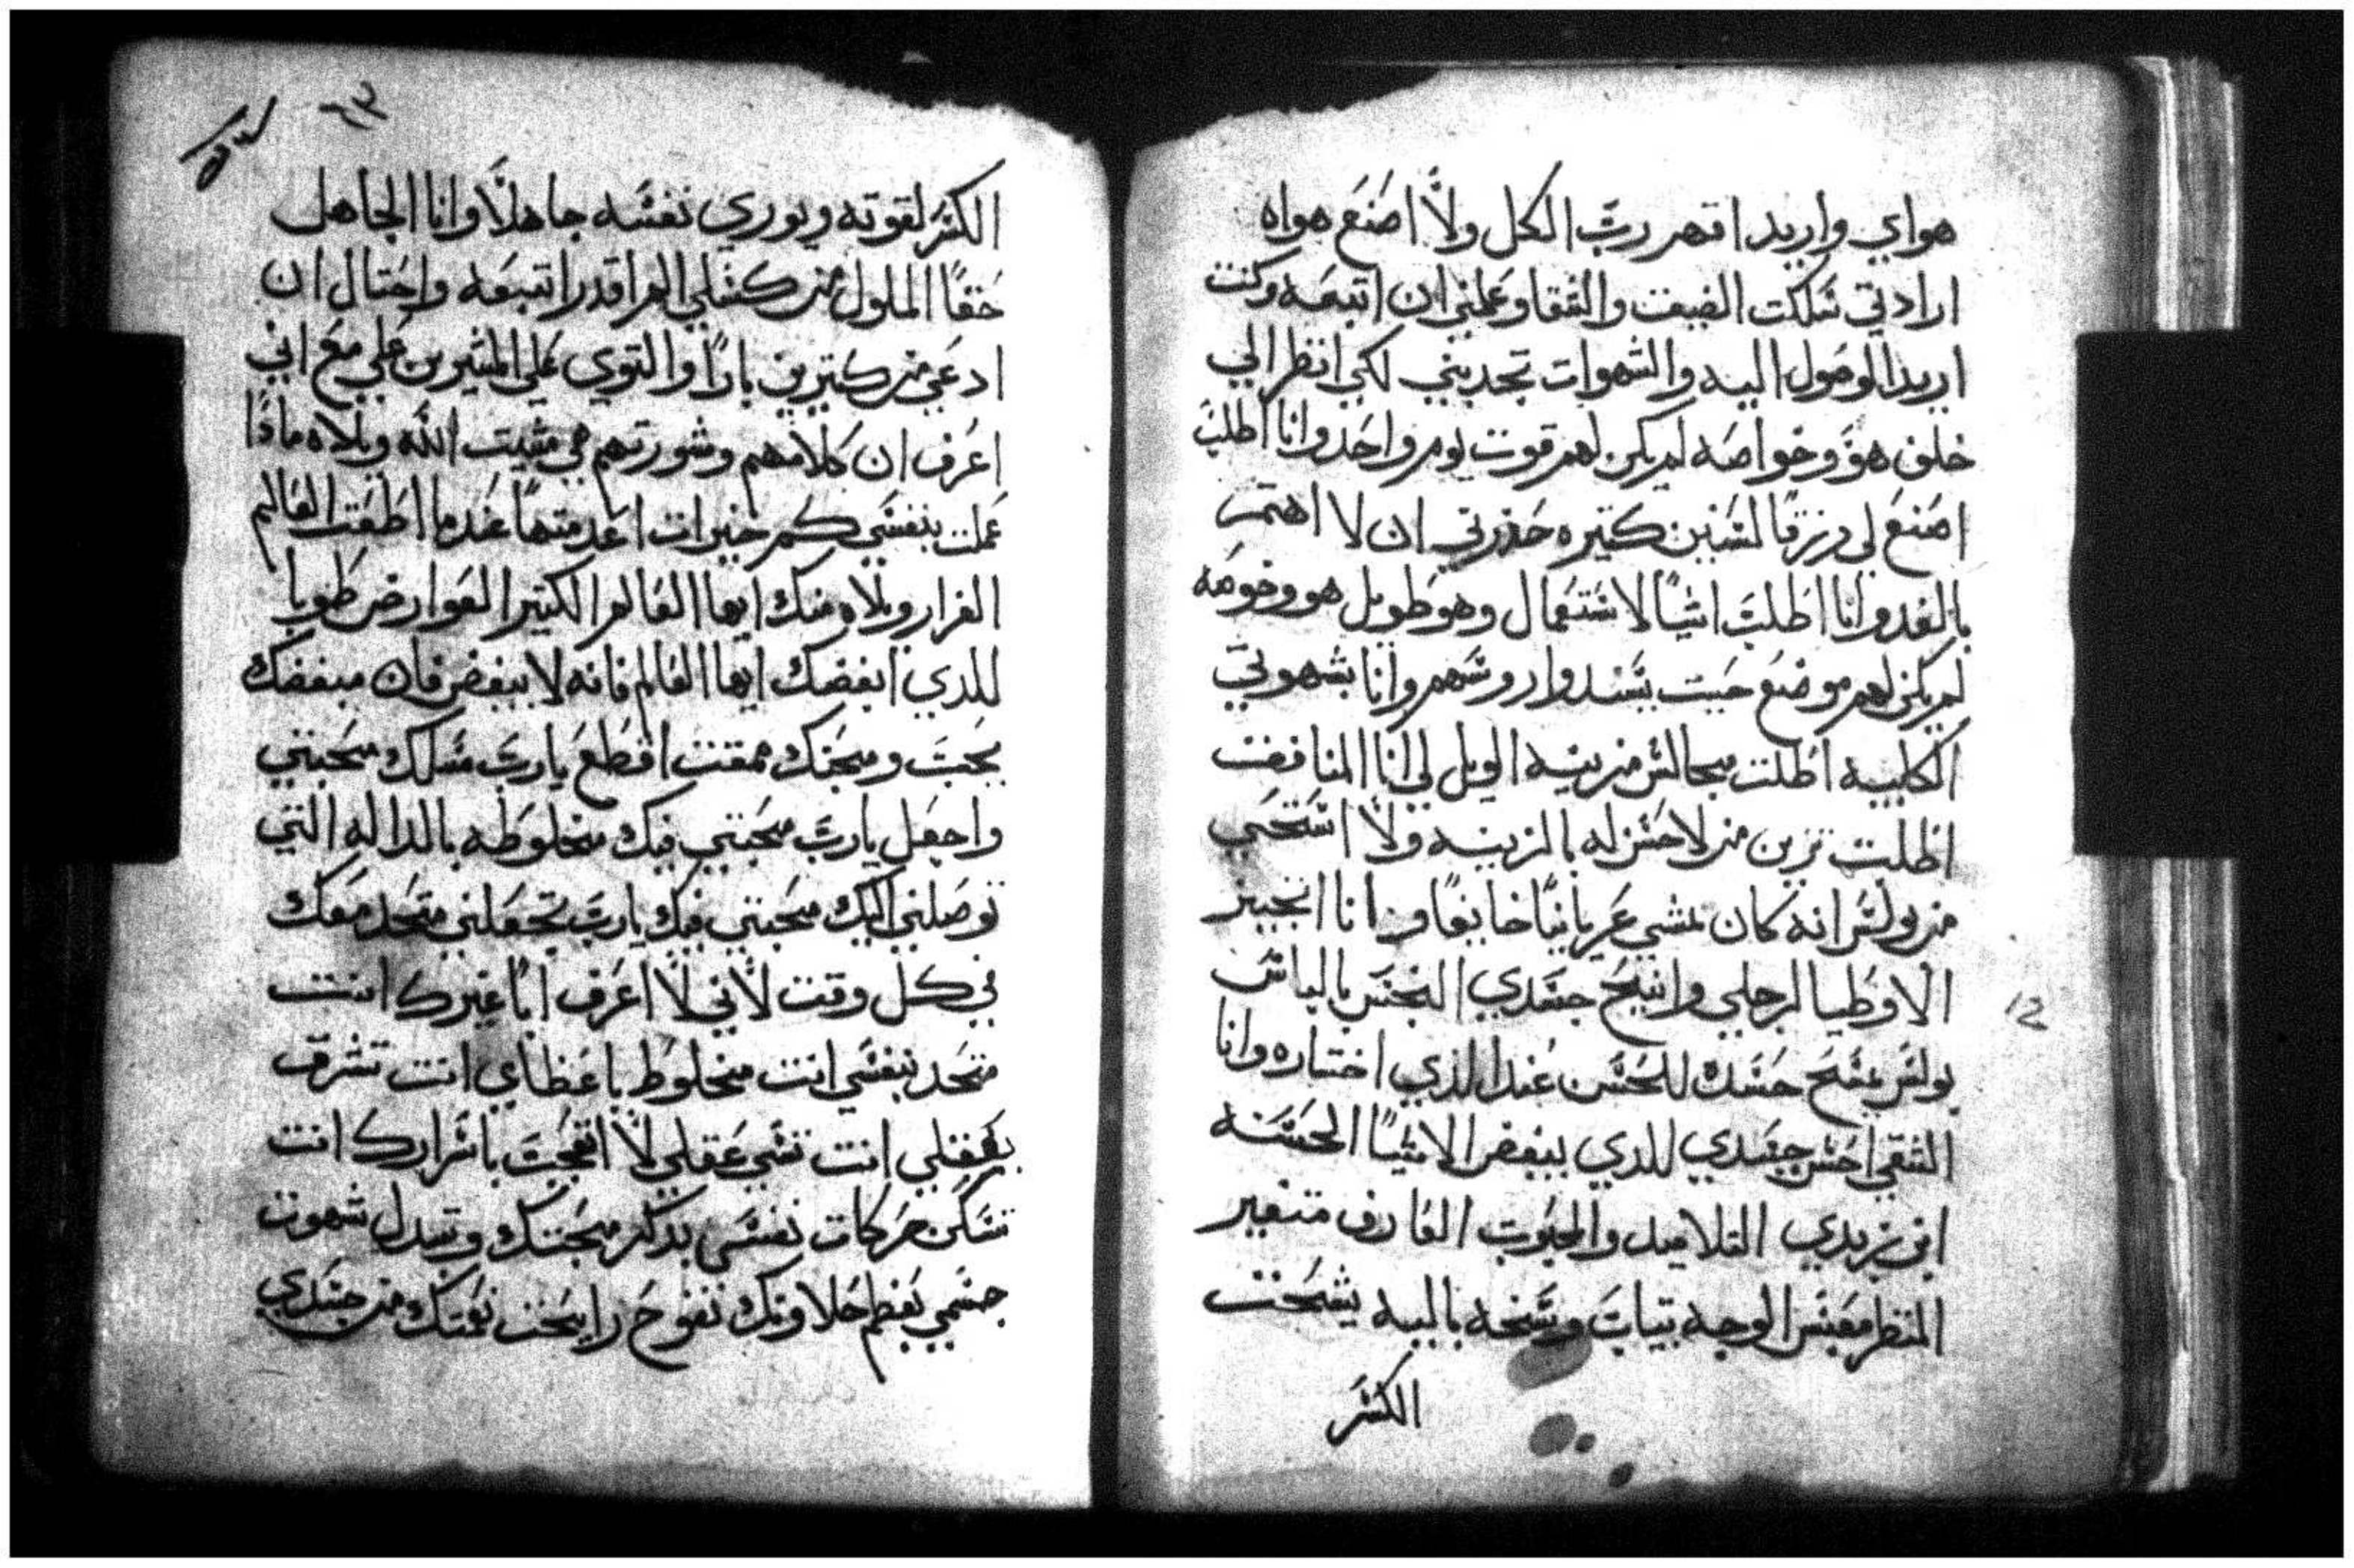 هواي واريد اقهر ربَّ الكل ولاَّ اصنع هواه
ارادتي سَلكت الضيف والشقا وعلمني ان اتبعه وكنت
اريد الوصول اليه والشهوات تجدبني لكي انظر الي
خلف هوَ وخواصَه لم يكن لهم قوت يوم واحَد وانا اطلبَ
اصَنعَ لي رزقًا لسَنين كتيره حَذرني ان لا اهتم
بالغد وانا اطلبَ اشيًا لاستعمال وهو طويل هو وخومه
لم يكن لهم موضَع حَيت يسَندوا روسَهم وانا بشهوتي
الكلبيه اطلت مجالس مزينه الويل لي انا المنافف
اطلت تزين منزلا حسَن له بالزينه ولاَّ اسَتحَي
من بولسَ انه كان يمشي عَريانًا خايفًا وانا اتجبن
الاوطيا لرجلي وانيحَ جسَدي النجسَ بالباسَ
بولسَ جسَدك للحَسَن عند الذي اختاره وانا
الشقي احسَن جسَدي للدي يبغض الاشيًا الحَسَنه
ابن زبدي التلاميد والمحبوبَ العارف متغير
المنظر معَبسَ الوجه بتيابَ وسَخه باليه يشحَت
الكسَر
الكسَر لقوته ويوري نفسَه جاهلاَّ وانا الجاهل
حَقًا الملول من كسَلي لم اقدر اتبعَه واحَتال ان
ادعَي من كتيرين بارًا والتوي عَلي المشيرين عَلي معَ اني
اعَرف ان كلامهم وشورتهم هي مشيت الله ويلاه مادًا
عَملت بنفسَي كم خيرات اعَدمتها عَندما اطعَت العَالم
الغرار ويلاه منك ايها العَالم الكتير العَوارض طوبا
للدي ابغضك ايها العَالم فانه لا يبغض فان مبغضك
يحَبَ ومحبَك يمقت اقطعَ ياربَ مسَلك محَبتي
واجعَل ياربَ محَبتي فيك مخلوطه بالداله التي
توصَلني اليك محَبتي فيك ياربَ تجعَلني متحَد معَك
في كل وقت لأني لاَّ اعَرف ابًا غيرك انت
متحَد بنفسَي انت مخلوط باعَظاي انت تشرق
بعَقلي انت تسَبي عَقلي لاَّ اتعَجبَ باسَرارك انت
تسَكن حَركات نفسَي بدكر محَبتك وتبدل شهوت
جسَمي بعَظم حَلاوتك تفوحَ رايحَت نعَمتك من جسَدي